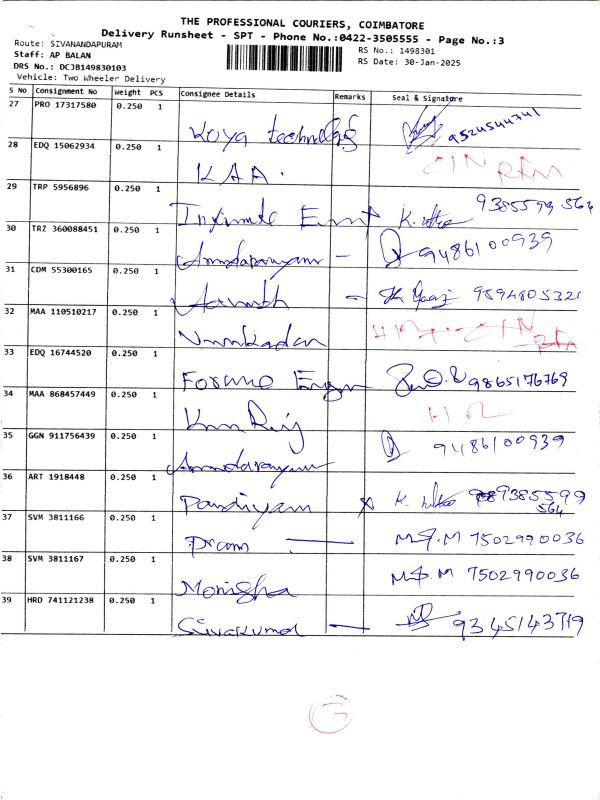 THE PROFESSIONAL COURIERS, COIMBATORE
Delivery Runsheet - SPT - Phone No.:0422-3505555 - Page No.:3
Route: SIVANANDAPURAM
Staff: AP BALAN
DRS No.: DCJB149830103
Vehicle: Two Wheeler Delivery
RS No.: 1498301
RS Date: 30-Jan-2025
S No Consignment No Weight PCS Consignee Details Remarks Seal & Signature
27 PRO 17317580 0.250 1 Koya 9524544741
28 EDQ 15062934 0.250 1 KAA.
29 TRP 5956896 0.250 1 9385599 564
30 TRZ 360088451 0.250 1 Annadapanyam - 9486100939
31 CDM 55300165 0.250 1 - 9894805321
32 MAA 110510217 0.250 1
33 EDQ 16744520 0.250 1 9865176769
34 MAA 868457449 0.250 1
35 GGN 911756439 0.250 1 9486100939
36 ART 1918448 0.250 1 Pandiyam 9385599
564
37 SVM 3811166 0.250 1 Prem - M.M 7502990036
38 SVM 3811167 0.250 1 Monisha M.M 7502990036
39 HRD 741121238 0.250 1 Sivakumar - 9345143719
G